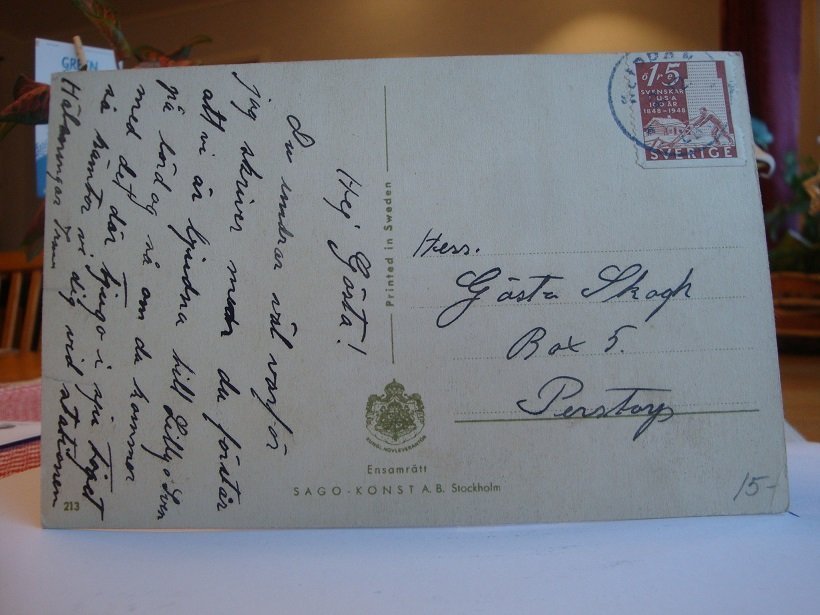 Hej Gösta!
Du undrar väl varför
jag skriver men du förstår
att vi är bjudna till Lilly o Sven
på lördag så om du kommer
med det där tjugo i sju tåget
så hämtar vi dig vid stationen
Hälsningar
Printed in Sweden
Herr.
Gösta Skogh
Box 5.
Perstorp
KUNGL. HOVLEVERANTÖR
Ensamrätt
SAGO-KONST A.B. Stockholm
213
15-
ö 15
SVENSKAR
I USA
100 ÅR
1848-1948
SVERIGE
GREEN